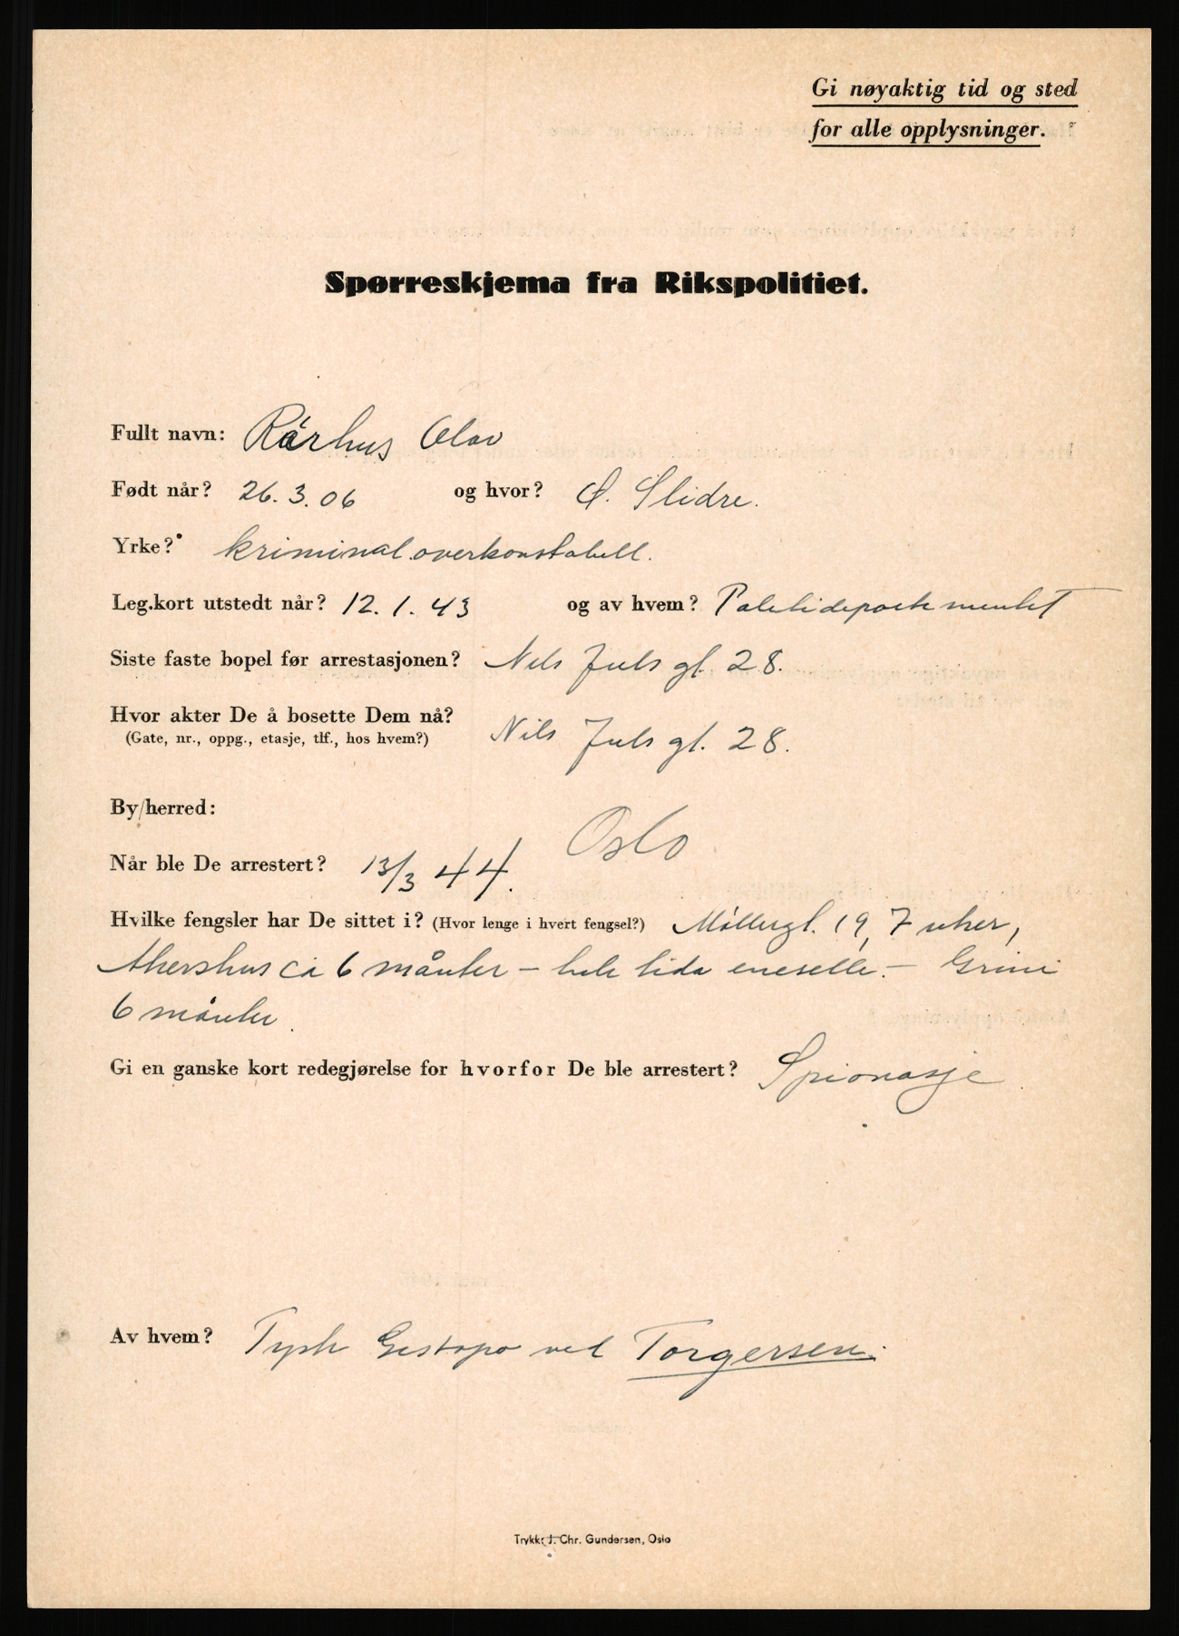 Gi nøyaktig tid og sted
for alle opplysninger.
Spørreskjema fra Rikspolitiet.
Fullt navn: Rørhus Olav
Født når? 26.3.06 og hvor? Ø. Slidre.
Yrke? kriminaloverkonstabell.
Leg.kort utstedt når? 12.1.43 og av hvem? Politidepartementet
Siste faste bopel før arrestasjonen? Nils Juls gt. 28.
Hvor akter De å bosette Dem nå? Nils Juls gt. 28.
(Gate, nr., oppg., etasje, tlf., hos hvem?)
By/herred: Oslo
Når ble De arrestert? 13/3 44.
Hvilke fengsler har De sittet i? (Hvor lenge i hvert fengsel?) Møllergt. 19, 7 uker,
Akershus ca 6 månter – hele tida eneselle. – Grini
6 månter.
Gi en ganske kort redegjørelse for hvorfor De ble arrestert? Spionasje
Av hvem? Tysk Gestapo ved Torgersen.
Trykk: J. Chr. Gundersen, Oslo